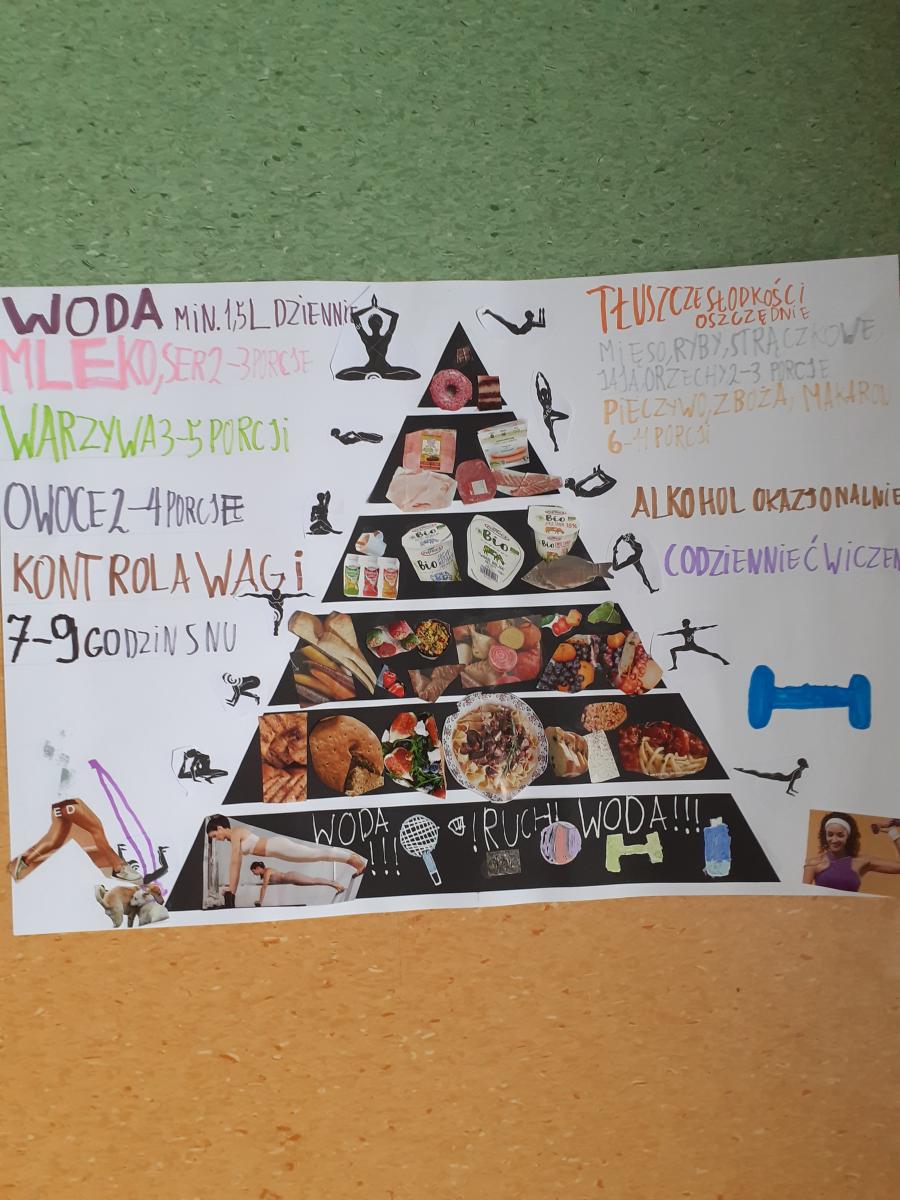 WODA MIN. 1,5L DZIENNIE
MLEKO, SER 2-3 PORCJE
WARZYWA 3-5 PORCJI
OWOCE 2-4 PORCJE
KONTROLA WAGI
7-9 GODZIN SNU
TŁUSZCZE SŁODKOŚCI
OSZCZĘDNIE
MIĘSO, RYBY, STRĄCZKOWE,
JAJA, ORZECHY 2-3 PORCJE
PIECZYWO, ZBOŻA, MAKARON
PORCJI
ALKOHOL OKAZJONALNIE
CODZIENNIE ĆWICZEN
Bio
Bio
Bio
Bio
Bio
WODA !RUCH! WODA!!!
!!!
ED